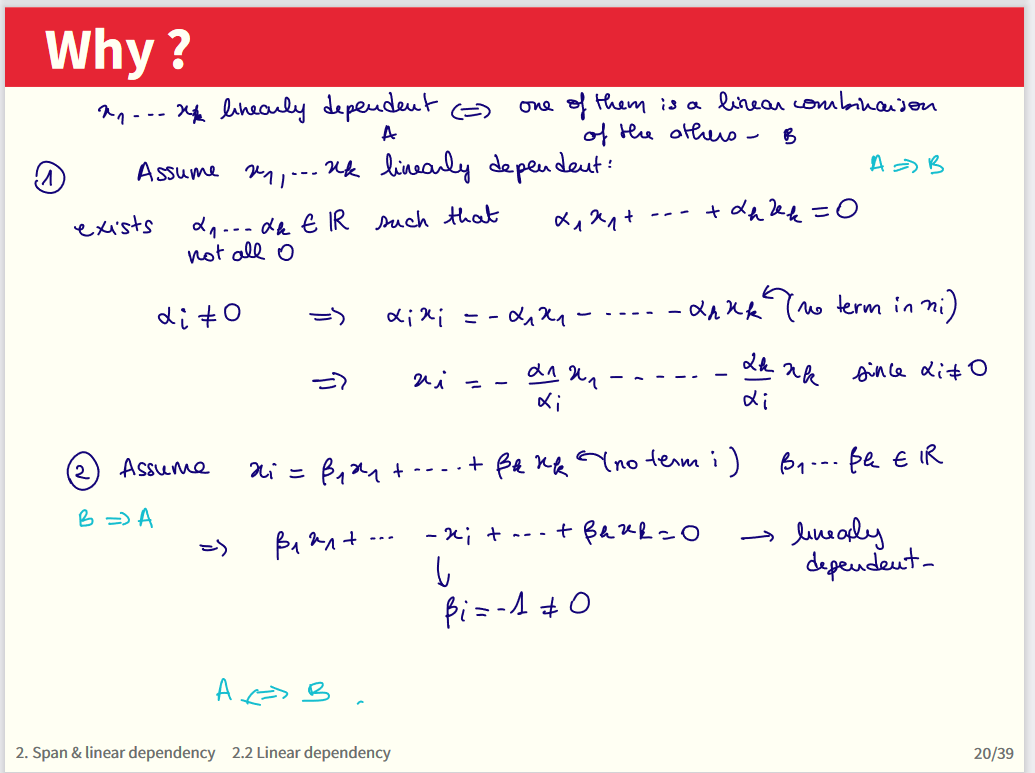 Why ?
x₁ --- xₖ linearly dependent ⇔ one of them is a linear combinaison
A of the others - B
① Assume x₁, ... xₖ linearly dependent: A ⇒ B
exists α₁ --- αₖ ∈ ℝ such that α₁x₁ + --- + αₖxₖ = 0
not all 0
αᵢ ≠ 0 ⇒ αᵢxᵢ = - α₁x₁ - ---- - αₖxₖ (no term in xᵢ)
⇒ xᵢ = - α₁/αᵢ x₁ - ----- - αₖ/αᵢ xₖ since αᵢ ≠ 0
② Assume xᵢ = β₁x₁ + ----+ βₖxₖ (no term i) β₁ --- βₖ ∈ ℝ
B ⇒ A
⇒ β₁x₁ + --- - xᵢ + --- + βₖxₖ = 0 → linearly
dependent -
βᵢ = -1 ≠ 0
A ⇔ B .
2. Span & linear dependency 2.2 Linear dependency 20/39